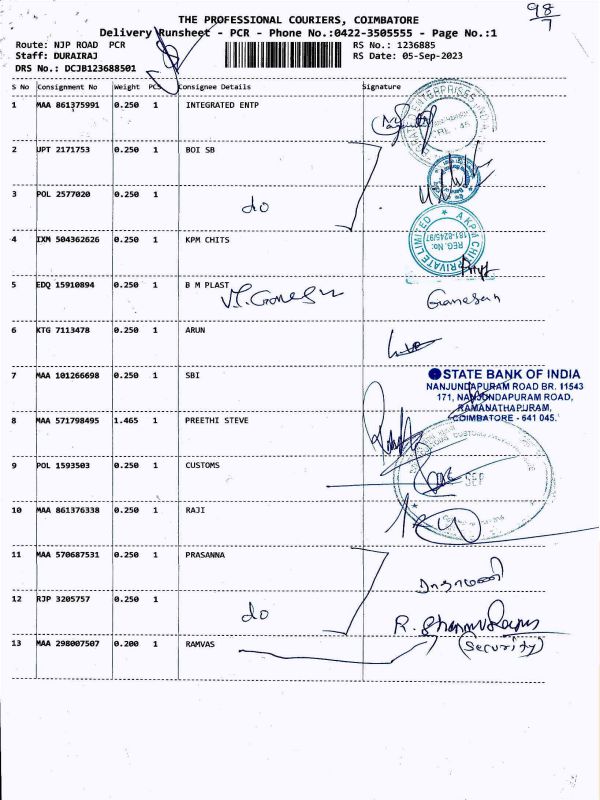 98/7
THE PROFESSIONAL COURIERS, COIMBATORE
Delivery Runsheet - PCR - Phone No.:0422-3505555 - Page No.:1
Route: NJP ROAD PCR RS No.: 1236885
Staff: DURAIRAJ RS Date: 05-Sep-2023
DRS No.: DCJB123688501
S No Consignment No Weight PCS Consignee Details Signature
1 MAA 861375991 0.250 1 INTEGRATED ENTP
2 UPT 2171753 0.250 1 BOI SB
3 POL 2577020 0.250 1 do
4 IXM 504362626 0.250 1 KPM CHITS
AKPM CHI PRIVATE LIMITED
REG. No:
181-8245/97
5 EDQ 15910894 0.250 1 B M PLAST M. Ganesan Ganesan
6 KTG 7113478 0.250 1 ARUN
7 MAA 101266698 0.250 1 SBI
STATE BANK OF INDIA
NANJUNDAPURAM ROAD BR. 11543
171, NANJUNDAPURAM ROAD,
RAMANATHAPURAM,
COIMBATORE - 641 045.
8 MAA 571798495 1.465 1 PREETHI STEVE
9 POL 1593503 0.250 1 CUSTOMS
SEP
10 MAA 861376338 0.250 1 RAJI
11 MAA 570687531 0.250 1 PRASANNA
12 RJP 3205757 0.250 1 do
13 MAA 298007507 0.200 1 RAMVAS
(Security)